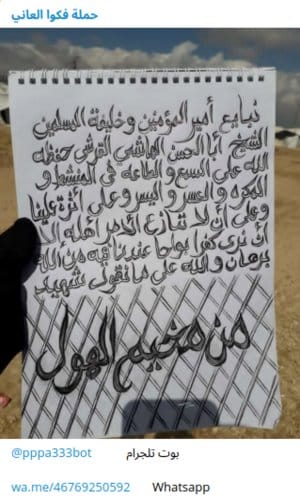 حملة فكوا العاني
نبايع أمير المؤمنين وخليفة المسلمين
الشيخ أبا الحسن الهاشمي القرشي حفظه
الله على السمع و الطاعة في المنشط و
المكره والعسر و اليسر وعلى أثرة علينا
وعلى أن لا ننازع الأمر أهله إلا
أن نرى كفرا بواحا عندنا فيه من الله
برهان والله على ما نقول شهيد
من مخيم الهول
بوت تلجرام @pppa333bot
wa.me/46769250592 Whatsapp